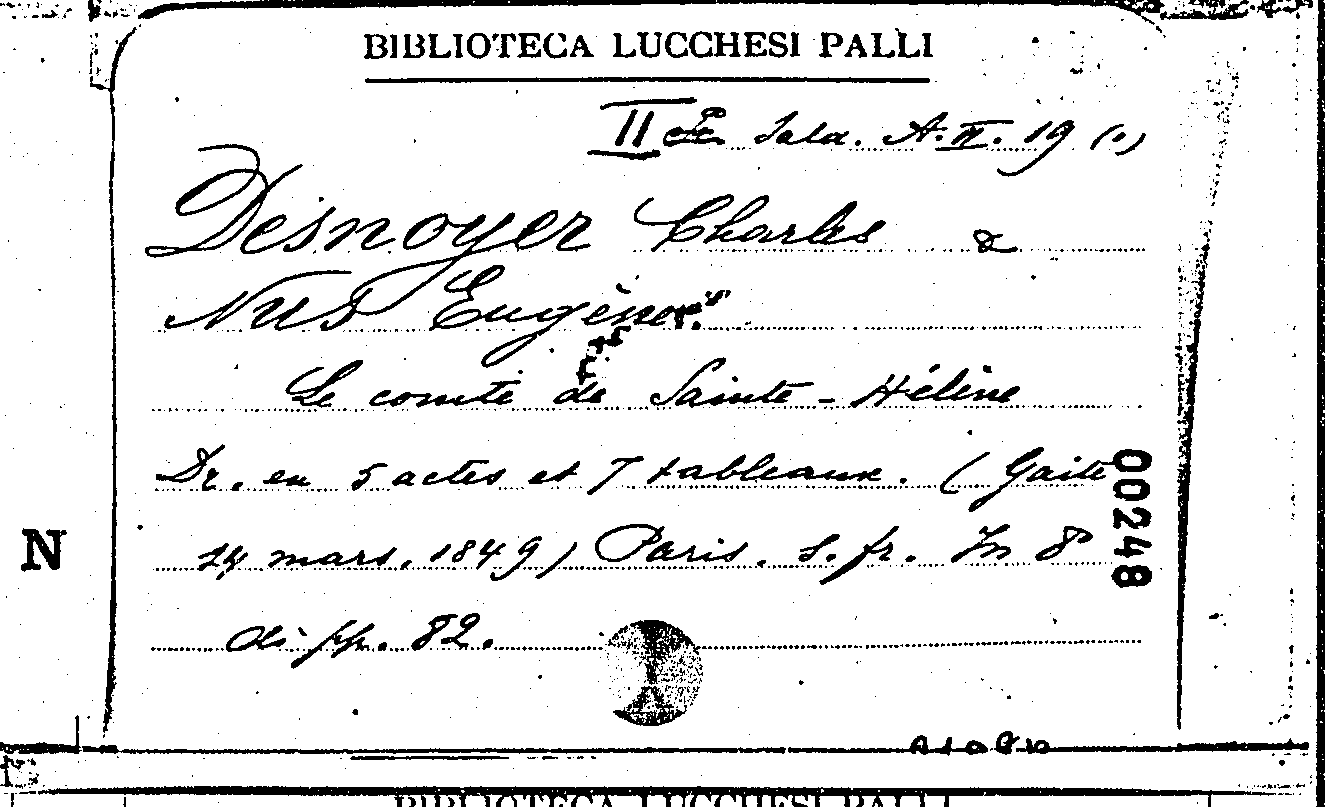 BIBLIOTECA LUCCHESI PALLI
II Sala. A. II. 19 (1)
Desnoyer Charles &
Nus Eugène
Le comte de Sainte-Hélène
Dr. en 5 actes et 7 tableaux. (Gaite
14 mars. 1849) Paris. s. fr. In 8°
di pp. 82.
00248
N
BIBLIOTECA LUCCHESI PALLI